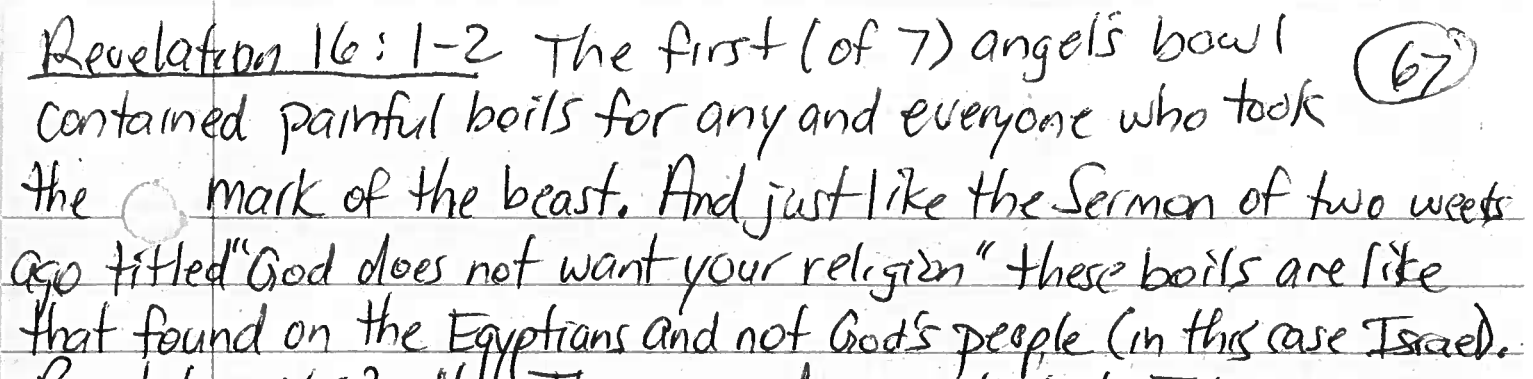 Revelation 16:1-2 The first (of 7) angel's bowl 67
contained painful boils for any and everyone who took
the mark of the beast. And just like the Sermon of two weeks
ago titled "God does not want your religion" these boils are like
that found on the Egyptians and not God's people (in this case Israel).